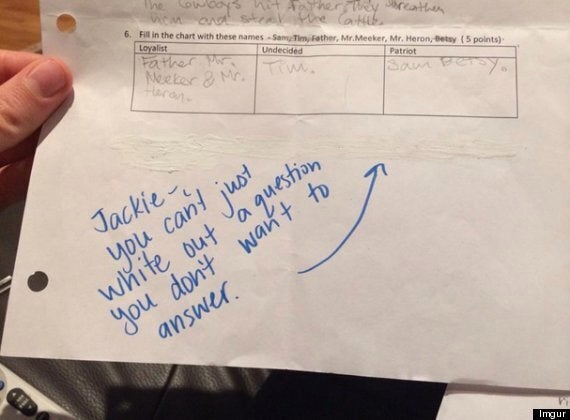 The Cowboys hit Father. They threaten
him and steal the cattle.
6. Fill in the chart with these names - Sam, Tim, Father, Mr.Meeker, Mr. Heron, Betsy ( 5 points)
Loyalist Undecided Patriot
Father Mr. Tim. Sam Betsy.
Meeker & Mr.
Heron.
Jackie -
you can't just
white out a question
you don't want to
answer.
Imgur